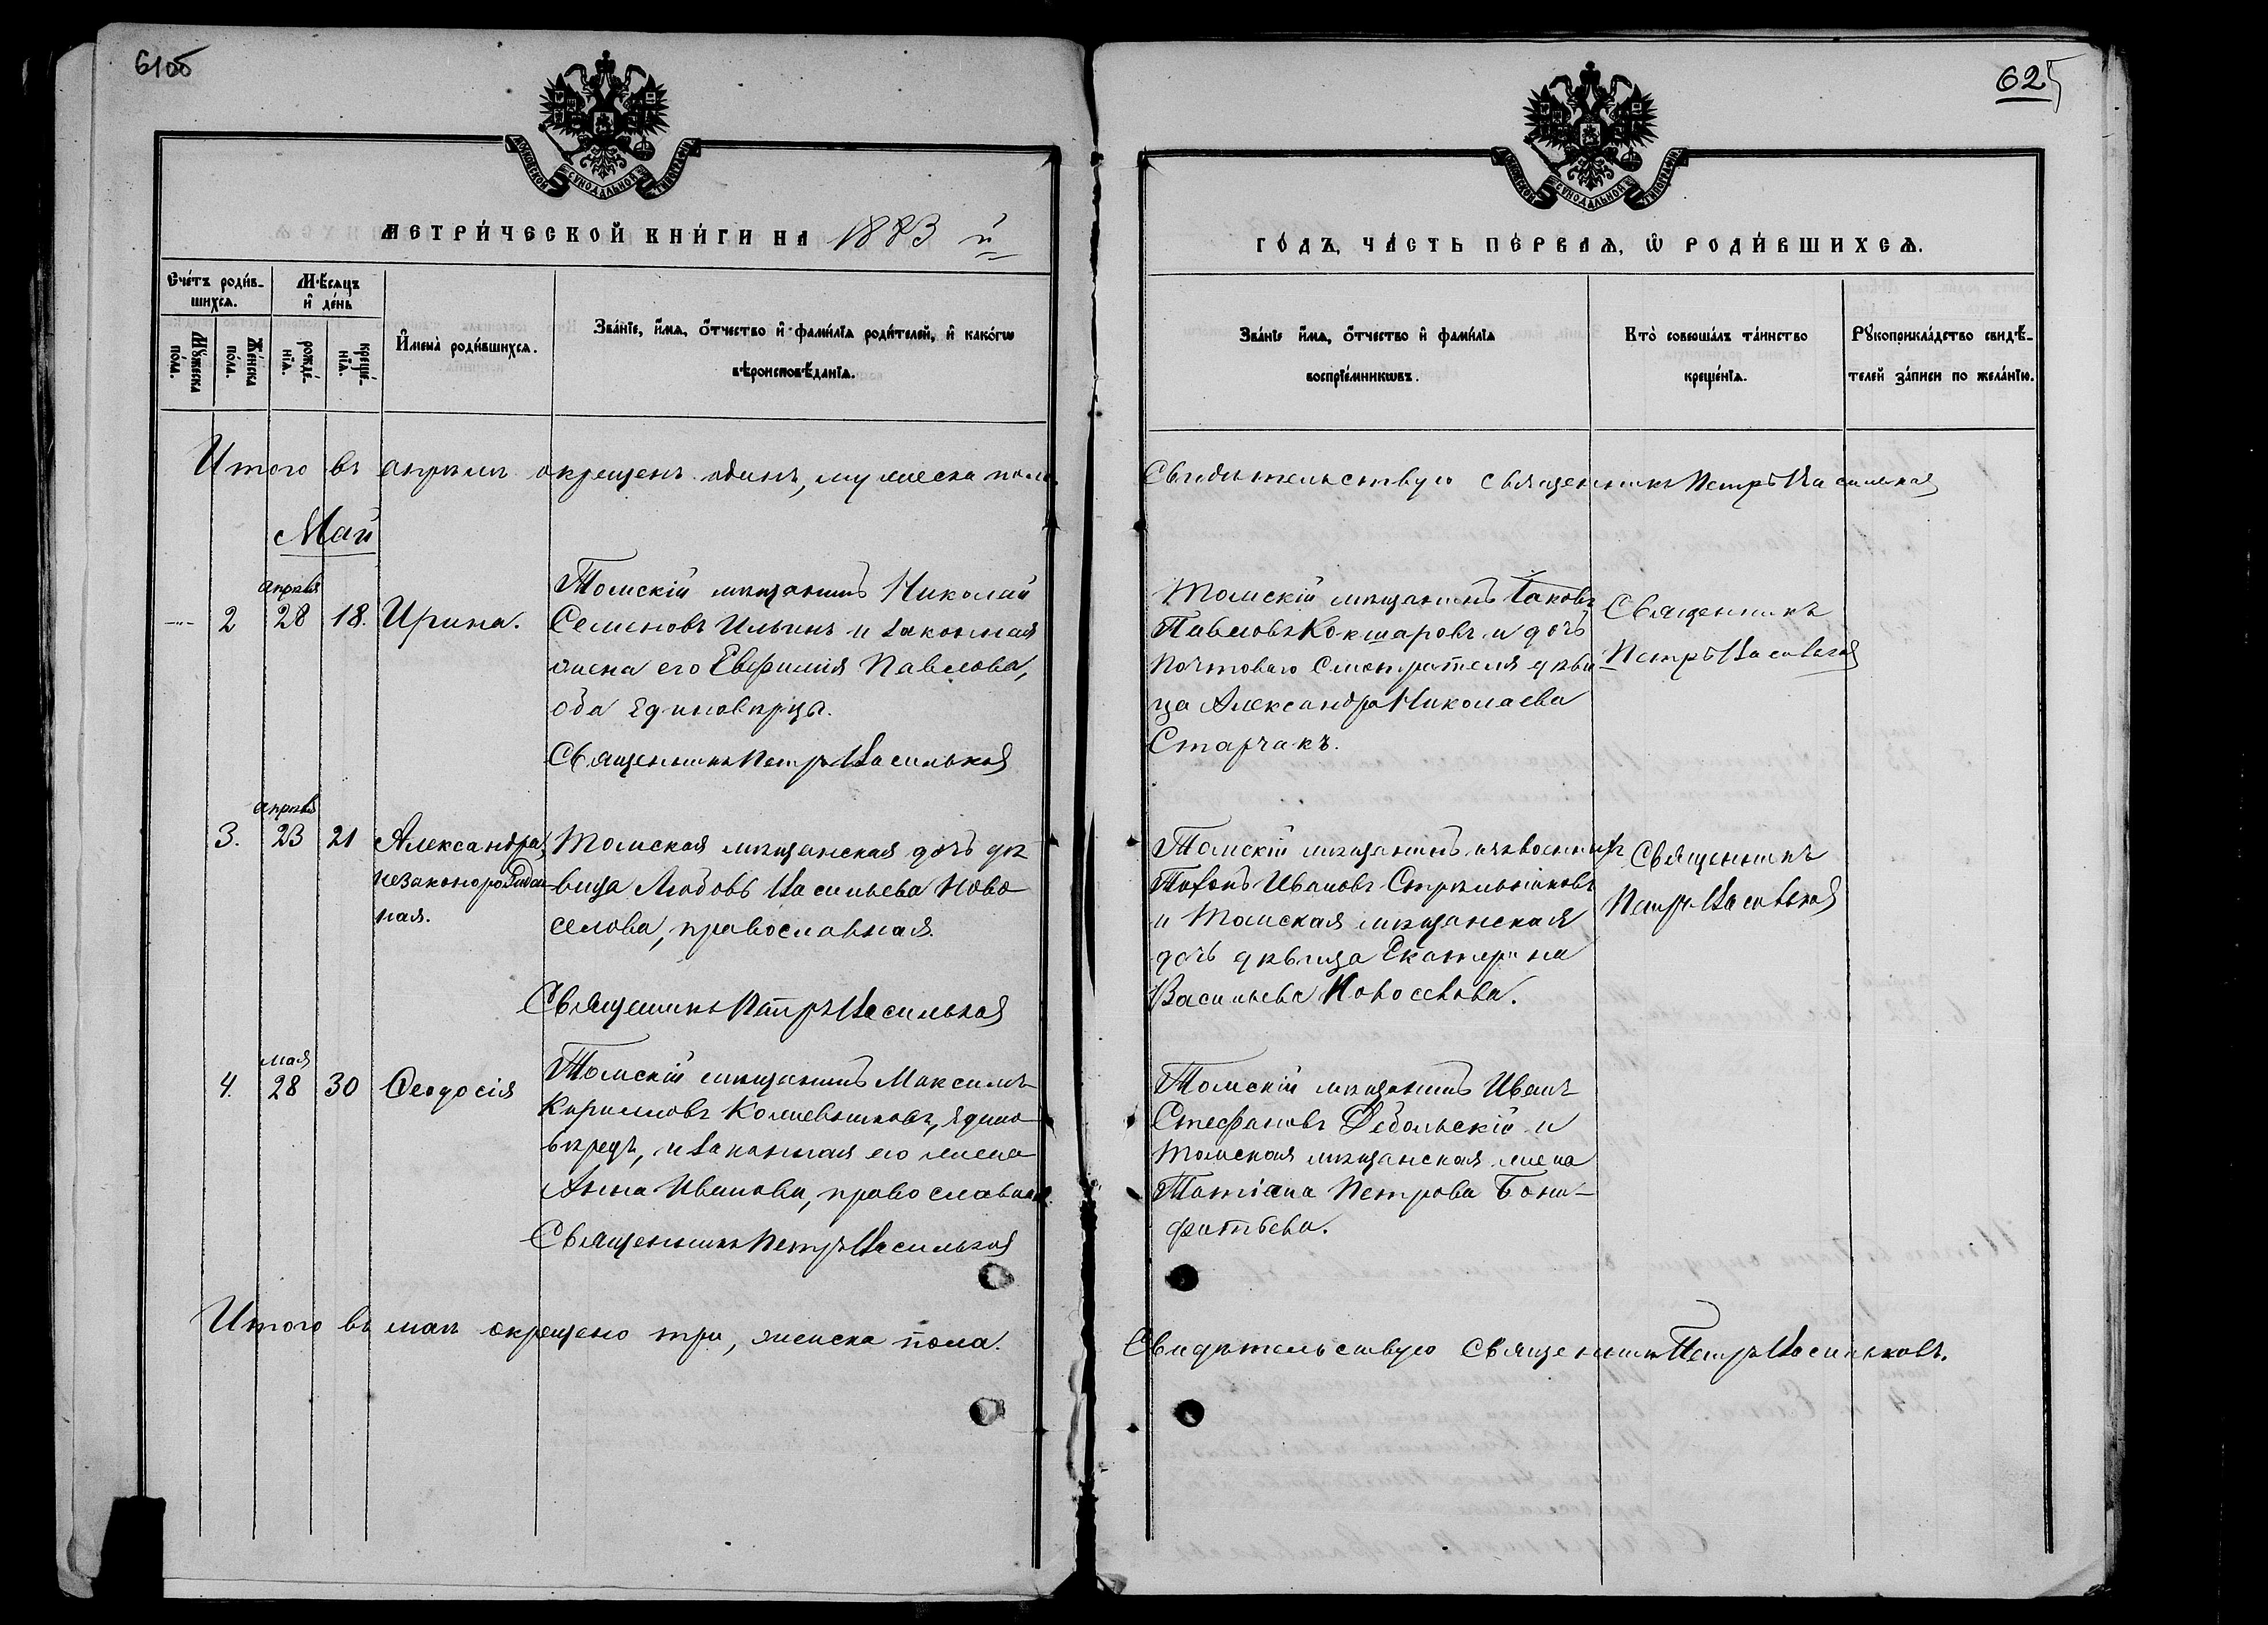 61об
МЕТРИ́ЧЕСКОЙ КНИ́ГИ НА 1883 й
Сче́тъ роди́в-
шихсѧ.
Мѣ́сѧцъ
и҆ де́нь
Мꙋ́жеска
по́ла.
Же́нска
по́ла.
рожде́-
нїѧ.
креще́-
нїѧ.
И҆мена̀ роди́вшихсѧ.
Зва́нїе, и҆́мѧ, ѻ҆́тчество и҆ фамн́лїѧ роди́телей, и҆ како́гѡ
вѣроисповѣ́данїѧ.
Итого въ апрѣлѣ окрещенъ одинъ, мужеска пола.
Май
2
апрѣля
28
18.
Ирина.
Томскій мѣщанинъ Николай
Семеновъ Ильинъ и законная
жена его Евфимія Павлова,
оба единовѣрцы.
Священникъ Петръ Васильков
3.
апрѣля
23
21
Александра,
незаконорожден
ная.
Томская мѣщанская дочь дѣ
вица Любовь Васильева Ново
селова, православная.
Священникъ Петръ Васильков
4.
мая
28
30
Ѳеодосія
Томскій мѣщанинъ Максимъ
Кирилловъ Колпевниковъ, едино
вѣрецъ, и законная его жена
Анна Иванова, православная.
Священникъ Петръ Васильков
Итого въ маѣ окрещено три, женска пола.
62
ГО́ДЪ, ЧА́СТЬ ПЕ́РВАѦ, Ѡ҆ РОДИ́ВШИХСѦ.
Зва́нїе и҆́мѧ, ѻ҆́тчество и҆ фамн́лїѧ
воспрїе́мникѡвъ.
Кто̀ соверша́лъ та́инство
креще́нїѧ.
Рꙋкоприкла́дство свидѣ́-
телей за́писи по жела́нїю.
Свидѣтельствую священникъ Петръ Васильков
Томскій мѣщанинъ Іаковъ
Павловъ Кокшаровъ и дочь
почтоваго смотрителя дѣви
ца Александра Николаева
Старчакъ.
Священникъ
Петръ Васильков
Томскій мѣщанинъ изъ военныхъ
Тихонъ Ивановъ Стрѣльниковъ
и Томская мѣщанская
дочь дѣвица Екатерина
Васильева Новоселова.
Священникъ
Петръ Васильков
Томскій мѣщанинъ Иванъ
Стефановъ Дебольскій и
томская мѣщанская жена
Татіана Петрова Бони-
фатьева.
Свидѣтельствую священникъ Петръ Васильковъ.